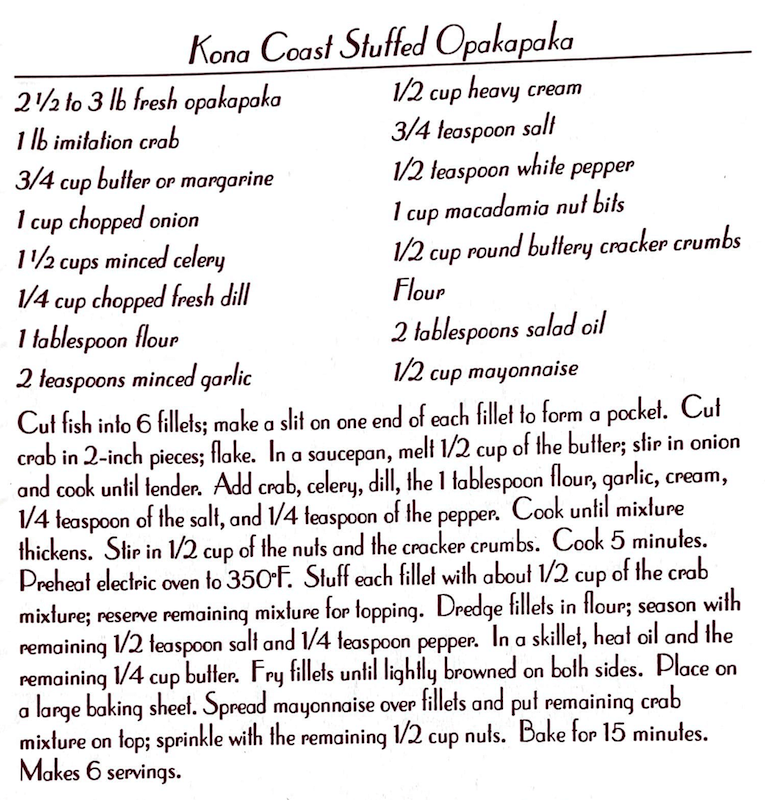 Kona Coast Stuffed Opakapaka
2 1/2 to 3 lb fresh opakapaka
1 lb imitation crab
3/4 cup butter or margarine
1 cup chopped onion
1 1/2 cups minced celery
1/4 cup chopped fresh dill
1 tablespoon flour
2 teaspoons minced garlic
1/2 cup heavy cream
3/4 teaspoon salt
1/2 teaspoon white pepper
1 cup macadamia nut bits
1/2 cup round buttery cracker crumbs
Flour
2 tablespoons salad oil
1/2 cup mayonnaise
Cut fish into 6 fillets; make a slit on one end of each fillet to form a pocket. Cut
crab in 2-inch pieces; flake. In a saucepan, melt 1/2 cup of the butter; stir in onion
and cook until tender. Add crab, celery, dill, the 1 tablespoon flour, garlic, cream,
1/4 teaspoon of the salt, and 1/4 teaspoon of the pepper. Cook until mixture
thickens. Stir in 1/2 cup of the nuts and the cracker crumbs. Cook 5 minutes.
Preheat electric oven to 350°F. Stuff each fillet with about 1/2 cup of the crab
mixture; reserve remaining mixture for topping. Dredge fillets in flour; season with
remaining 1/2 teaspoon salt and 1/4 teaspoon pepper. In a skillet, heat oil and the
remaining 1/4 cup butter. Fry fillets until lightly browned on both sides. Place on
a large baking sheet. Spread mayonnaise over fillets and put remaining crab
mixture on top; sprinkle with the remaining 1/2 cup nuts. Bake for 15 minutes.
Makes 6 servings.